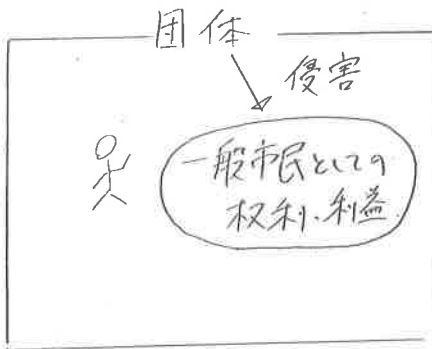 団体
侵害
一般市民としての
权利、利益